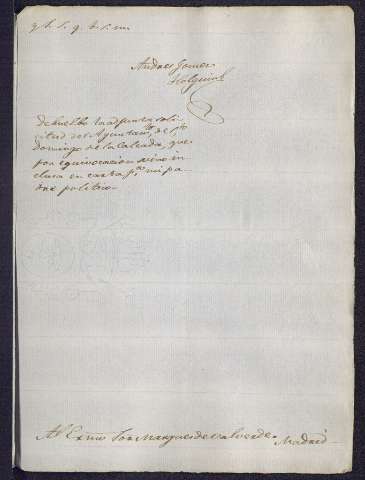 y s. s. q. b. s. m.
Andres Gomez
Holguin
Debuelbo la adjunta soli-
citud del Ayuntam.to de S.to
domingo de la Calzada, que
por equivocacion vino in
clusa en carta p.a mi pa
dre politico.
Al Exmo Sor Marques de Valverde. Madrid